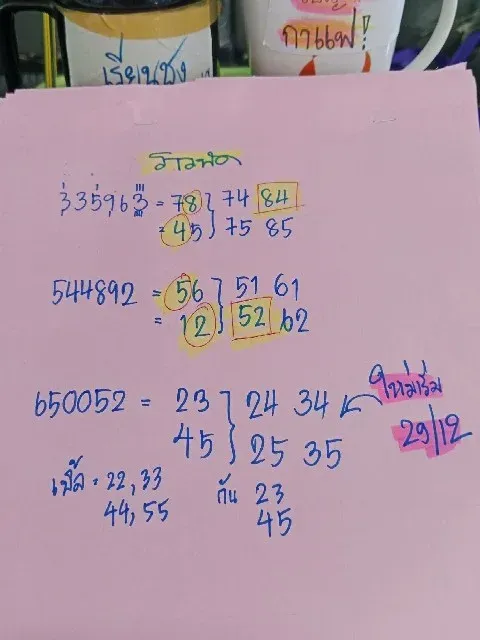 เรียนชง
กาแฟ!
335963 = 78 } 74 84
= 45 } 75 85
544892 = 56 } 51 61
= 12 } 52 62
650052 = 23 } 24 34
45 } 25 35
ใหม่เริ่ม
29/12
เบิ้ล = 22, 33
44, 55
กัน 23
45